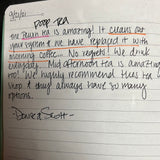 9/2/21
POOP TEA
The Train tea is amazing! It cleans out
your system & we have replaced it with
morning coffee... No regrets! We drink
everyday. Mid afternoon tea is amazing
too! We highly recommend this tea
shop & they always have so many
options.
- David Scott -